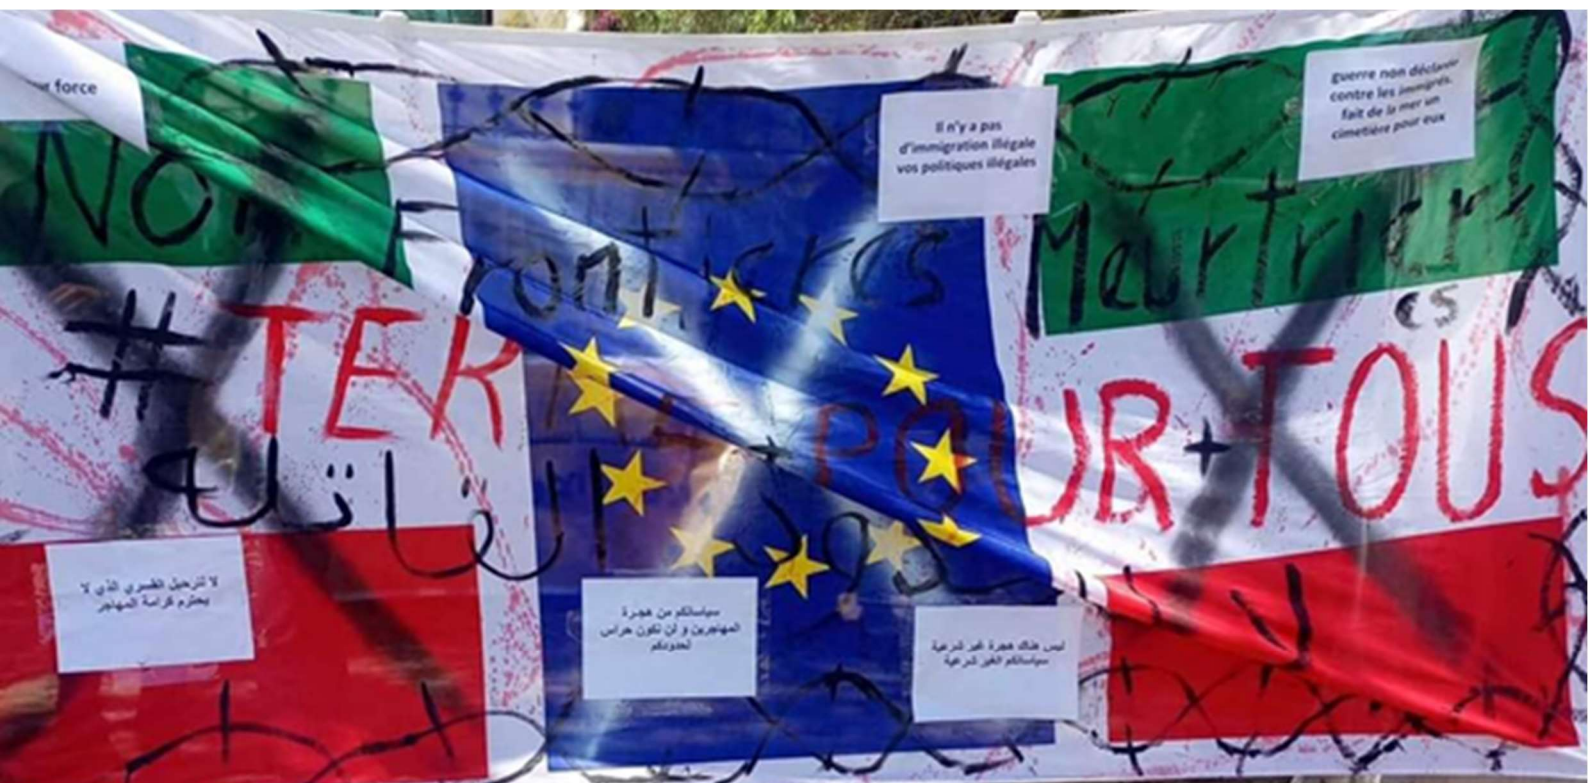 force
Il n'y a pas
d'immigration illégale
vos politiques illégales
guerre non
contre les immigrés.
fait de la mer un
cimetière pour eux
NON Frontières
# TERRE POUR + TOUS
لا القاتله
لا لترحيل القسري الذي لا
يحترم كرامة المهاجر
سياساتكم من هجرة
المهاجرين و لن نكون حراس
لحدودكم
ليس هناك هجرة غير شرعية
سياساتكم الغير شرعية